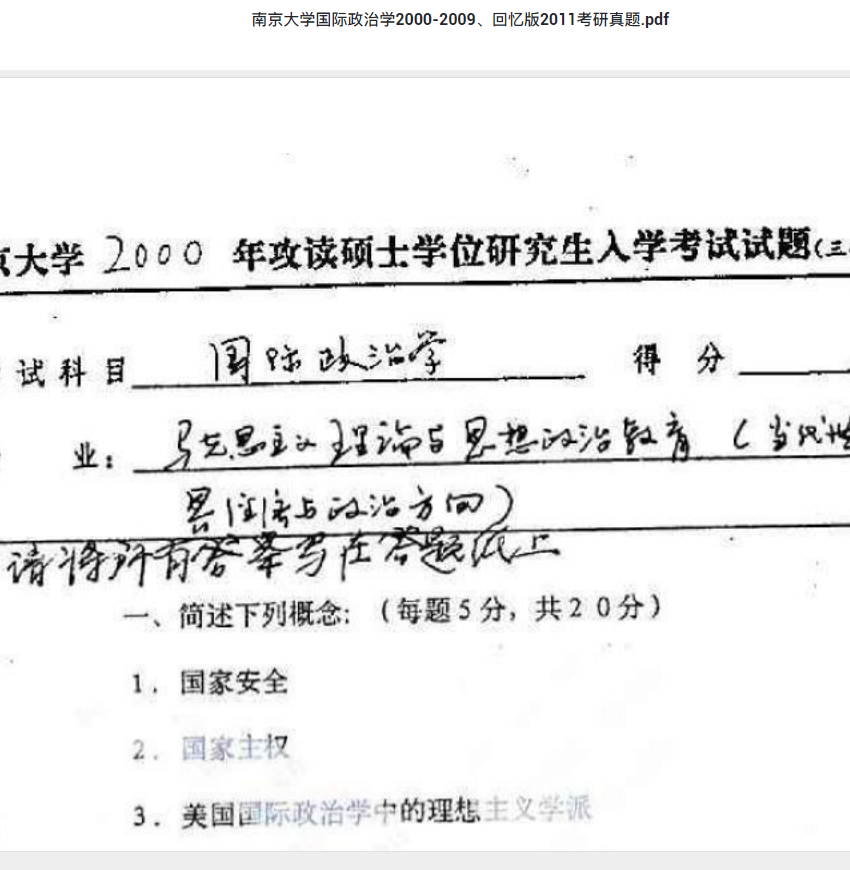 南京大学国际政治学2000-2009、回忆版2011考研真题.pdf
京大学 2000 年攻读硕士学位研究生入学考试试题(三
试科目 国际政治学 得分
业: 马克思主义理论与思想政治教育 (当代
与政治方向)
请将所有答案写在答题纸上
一、简述下列概念:(每题5分,共20分)
1. 国家安全
2. 国家主权
3. 美国国际政治学中的理想主义学派